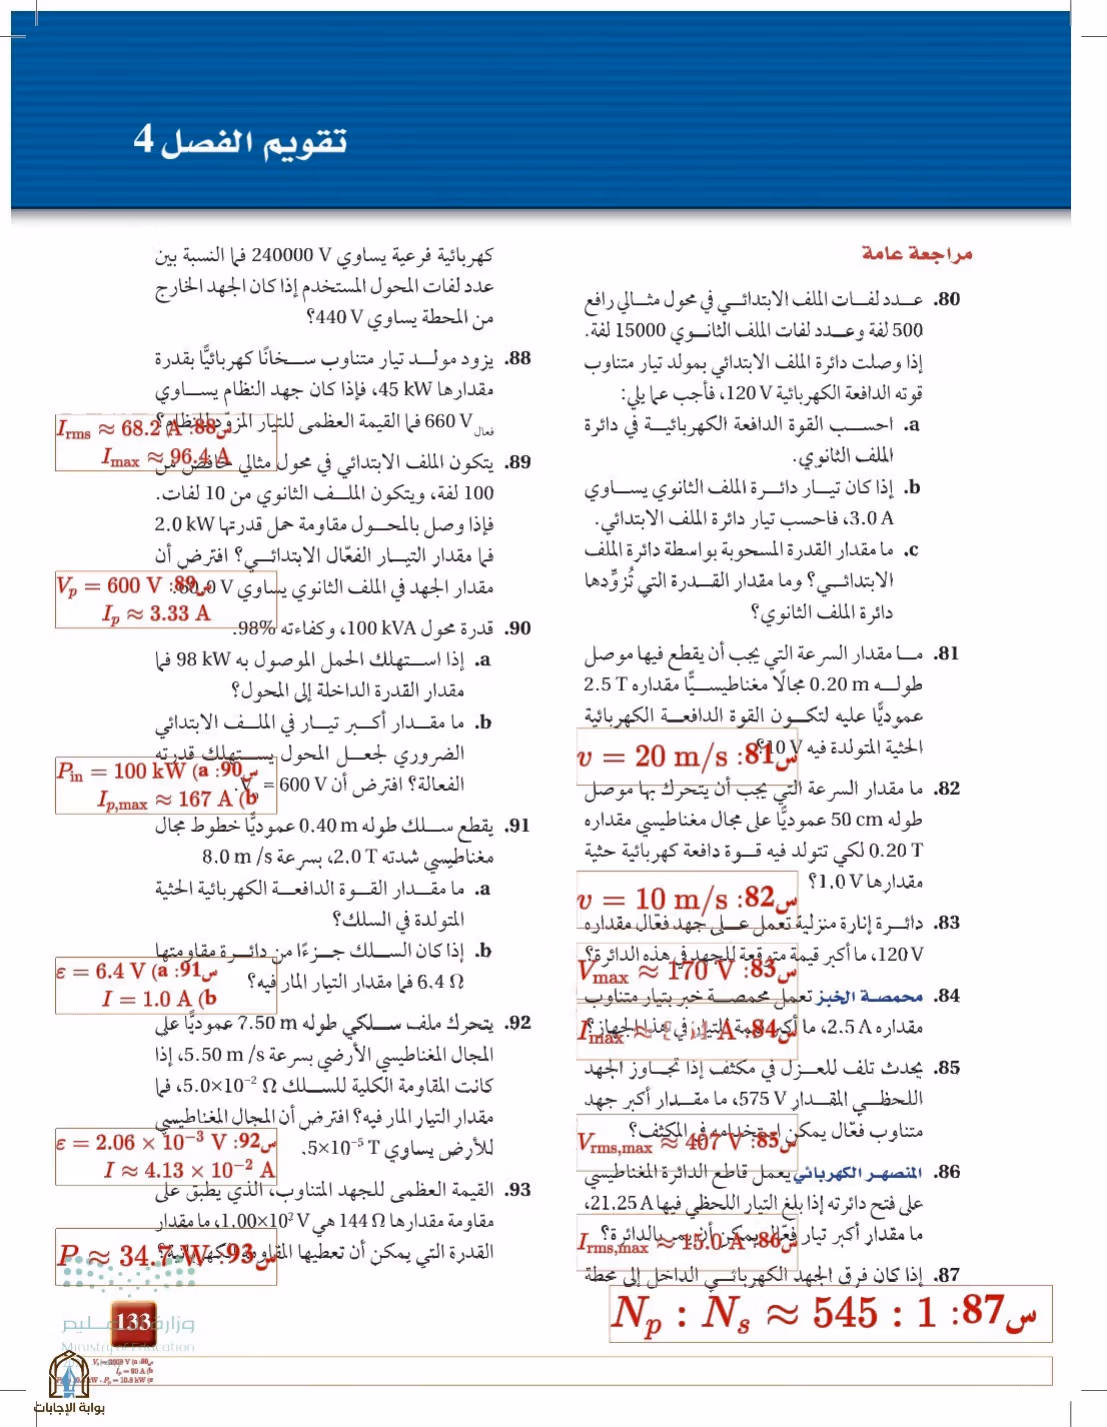 تقويم الفصل 4
مراجعة عامة
80. عدد لفات الملف الابتدائي في محول مثالي رافع
500 لفة وعدد لفات الملف الثانوي 15000 لفة.
إذا وصلت دائرة الملف الابتدائي بمولد تيار متناوب
قوته الدافعة الكهربائية 120 V، فأجب عما يلي:
a. احسب القوة الدافعة الكهربائية في دائرة
الملف الثانوي.
b. إذا كان تيار دائرة الملف الثانوي يساوي
3.0 A، فاحسب تيار دائرة الملف الابتدائي.
c. ما مقدار القدرة المسحوبة بواسطة دائرة الملف
الابتدائي؟ وما مقدار القدرة التي تُزوِّدها
دائرة الملف الثانوي؟
81. ما مقدار السرعة التي يجب أن يقطع فيها موصل
طوله 0.20 m مجالًا مغناطيسيًّا مقداره 2.5 T
عموديًّا عليه لتكون القوة الدافعة الكهربائية
الحثية المتولدة فيه 10 V؟
س81: v = 20 m/s
82. ما مقدار السرعة التي يجب أن يتحرك بها موصل
طوله 50 cm عموديًّا على مجال مغناطيسي مقداره
0.20 T لكي تتولد فيه قوة دافعة كهربائية حثية
مقدارها 1.0 V؟
س82: v = 10 m/s
83. دائرة إنارة منزلية تعمل على جهد فعّال مقداره
120 V، ما أكبر قيمة متوقعة للجهد في هذه الدائرة؟
س83: Vmax ≈ 170 V
84. محمصة الخبز تعمل محمصة خبز بتيار متناوب
مقداره 2.5 A، ما أكبر قيمة للتيار في هذا الجهاز؟
س84: Imax ≈ A
85. يحدث تلف للعزل في مكثف إذا تجاوز الجهد
اللحظي المقدار 575 V، ما مقدار أكبر جهد
متناوب فعّال يمكن استخدامه في المكثف؟
س85: Vrms,max ≈ 407 V
86. المنصهر الكهربائي يعمل قاطع الدائرة المغناطيسي
على فتح دائرته إذا بلغ التيار اللحظي فيها 21.25 A،
ما مقدار أكبر تيار فعّال يمكن أن يمر بالدائرة؟
س86: Irms,max ≈ 15.0 A
87. إذا كان فرق الجهد الكهربائي الداخل إلى محطة
س87: Np : Ns ≈ 545 : 1
كهربائية فرعية يساوي 240000 V فما النسبة بين
عدد لفات المحول المستخدم إذا كان الجهد الخارج
من المحطة يساوي 440 V؟
88. يزود مولد تيار متناوب سخانًا كهربائيًّا بقدرة
مقدارها 45 kW، فإذا كان جهد النظام يساوي
660 V فعال فما القيمة العظمى للتيار المزوّد للنظام؟
س88: Irms ≈ 68.2 A
Imax ≈ 96.4 A
89. يتكون الملف الابتدائي في محول مثالي خافض من
100 لفة، ويتكون الملف الثانوي من 10 لفات.
فإذا وصل بالمحول مقاومة حمل قدرتها 2.0 kW
فما مقدار التيار الفعّال الابتدائي؟ افترض أن
مقدار الجهد في الملف الثانوي يساوي 60.0 V.
س89: Vp = 600 V
Ip ≈ 3.33 A
90. قدرة محول 100 kVA، وكفاءته 98%.
a. إذا استهلك الحمل الموصول به 98 kW فما
مقدار القدرة الداخلة إلى المحول؟
b. ما مقدار أكبر تيار في الملف الابتدائي
الضروري لجعل المحول يستهلك قدرته
الفعالة؟ افترض أن Vp = 600 V.
س90: a) Pin = 100 kW
b) Ip,max ≈ 167 A
91. يقطع سلك طوله 0.40 m عموديًّا خطوط مجال
مغناطيسي شدته 2.0 T، بسرعة 8.0 m/s
a. ما مقدار القوة الدافعة الكهربائية الحثية
المتولدة في السلك؟
b. إذا كان السلك جزءًا من دائرة مقاومتها
6.4 Ω فما مقدار التيار المار فيه؟
س91: a) ε = 6.4 V
b) I = 1.0 A
92. يتحرك ملف سلكي طوله 7.50 m عموديًّا على
المجال المغناطيسي الأرضي بسرعة 5.50 m/s، إذا
كانت المقاومة الكلية للسلك 5.0×10⁻² Ω، فما
مقدار التيار المار فيه؟ افترض أن المجال المغناطيسي
للأرض يساوي 5×10⁻⁵ T.
س92: ε = 2.06 × 10⁻³ V
I ≈ 4.13 × 10⁻² A
93. القيمة العظمى للجهد المتناوب، الذي يطبق على
مقاومة مقدارها 144 Ω هي 1.00×10² V، ما مقدار
القدرة التي يمكن أن تعطيها المقاومة الكهربائية؟
س93: P ≈ 34.7 W
وزارة التعليم
Ministry of Education
133
بوابة الإجابات